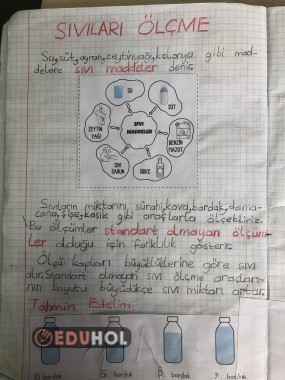 SIVILARI ÖLÇME
Su, süt, ayran, zeytinyağı, kolonya gibi mad-
delere sıvı maddeler denir.
SU
SÜT
ZEYTİN
YAĞI
SIVI
MADDELER
BENZİN
MAZOT
SIVI
SABUN
SİRKE
Sıvıların miktarını, sürahi, kova, bardak, dama-
cana, şişe, kaşık gibi araçlarla ölçebiliriz.
Bu ölçümler standart olmayan ölçüm-
ler olduğu için farklılık gösterir.
Ölçü kapları büyüklüklerine göre sıvı
alır. Standart olmayan sıvı ölçme araçları-
nın boyutu büyüdükçe sıvı miktarı artar.
Tahmin Edelim.
EDUHOL
10 bardak
5 bardak
bardak
bardak